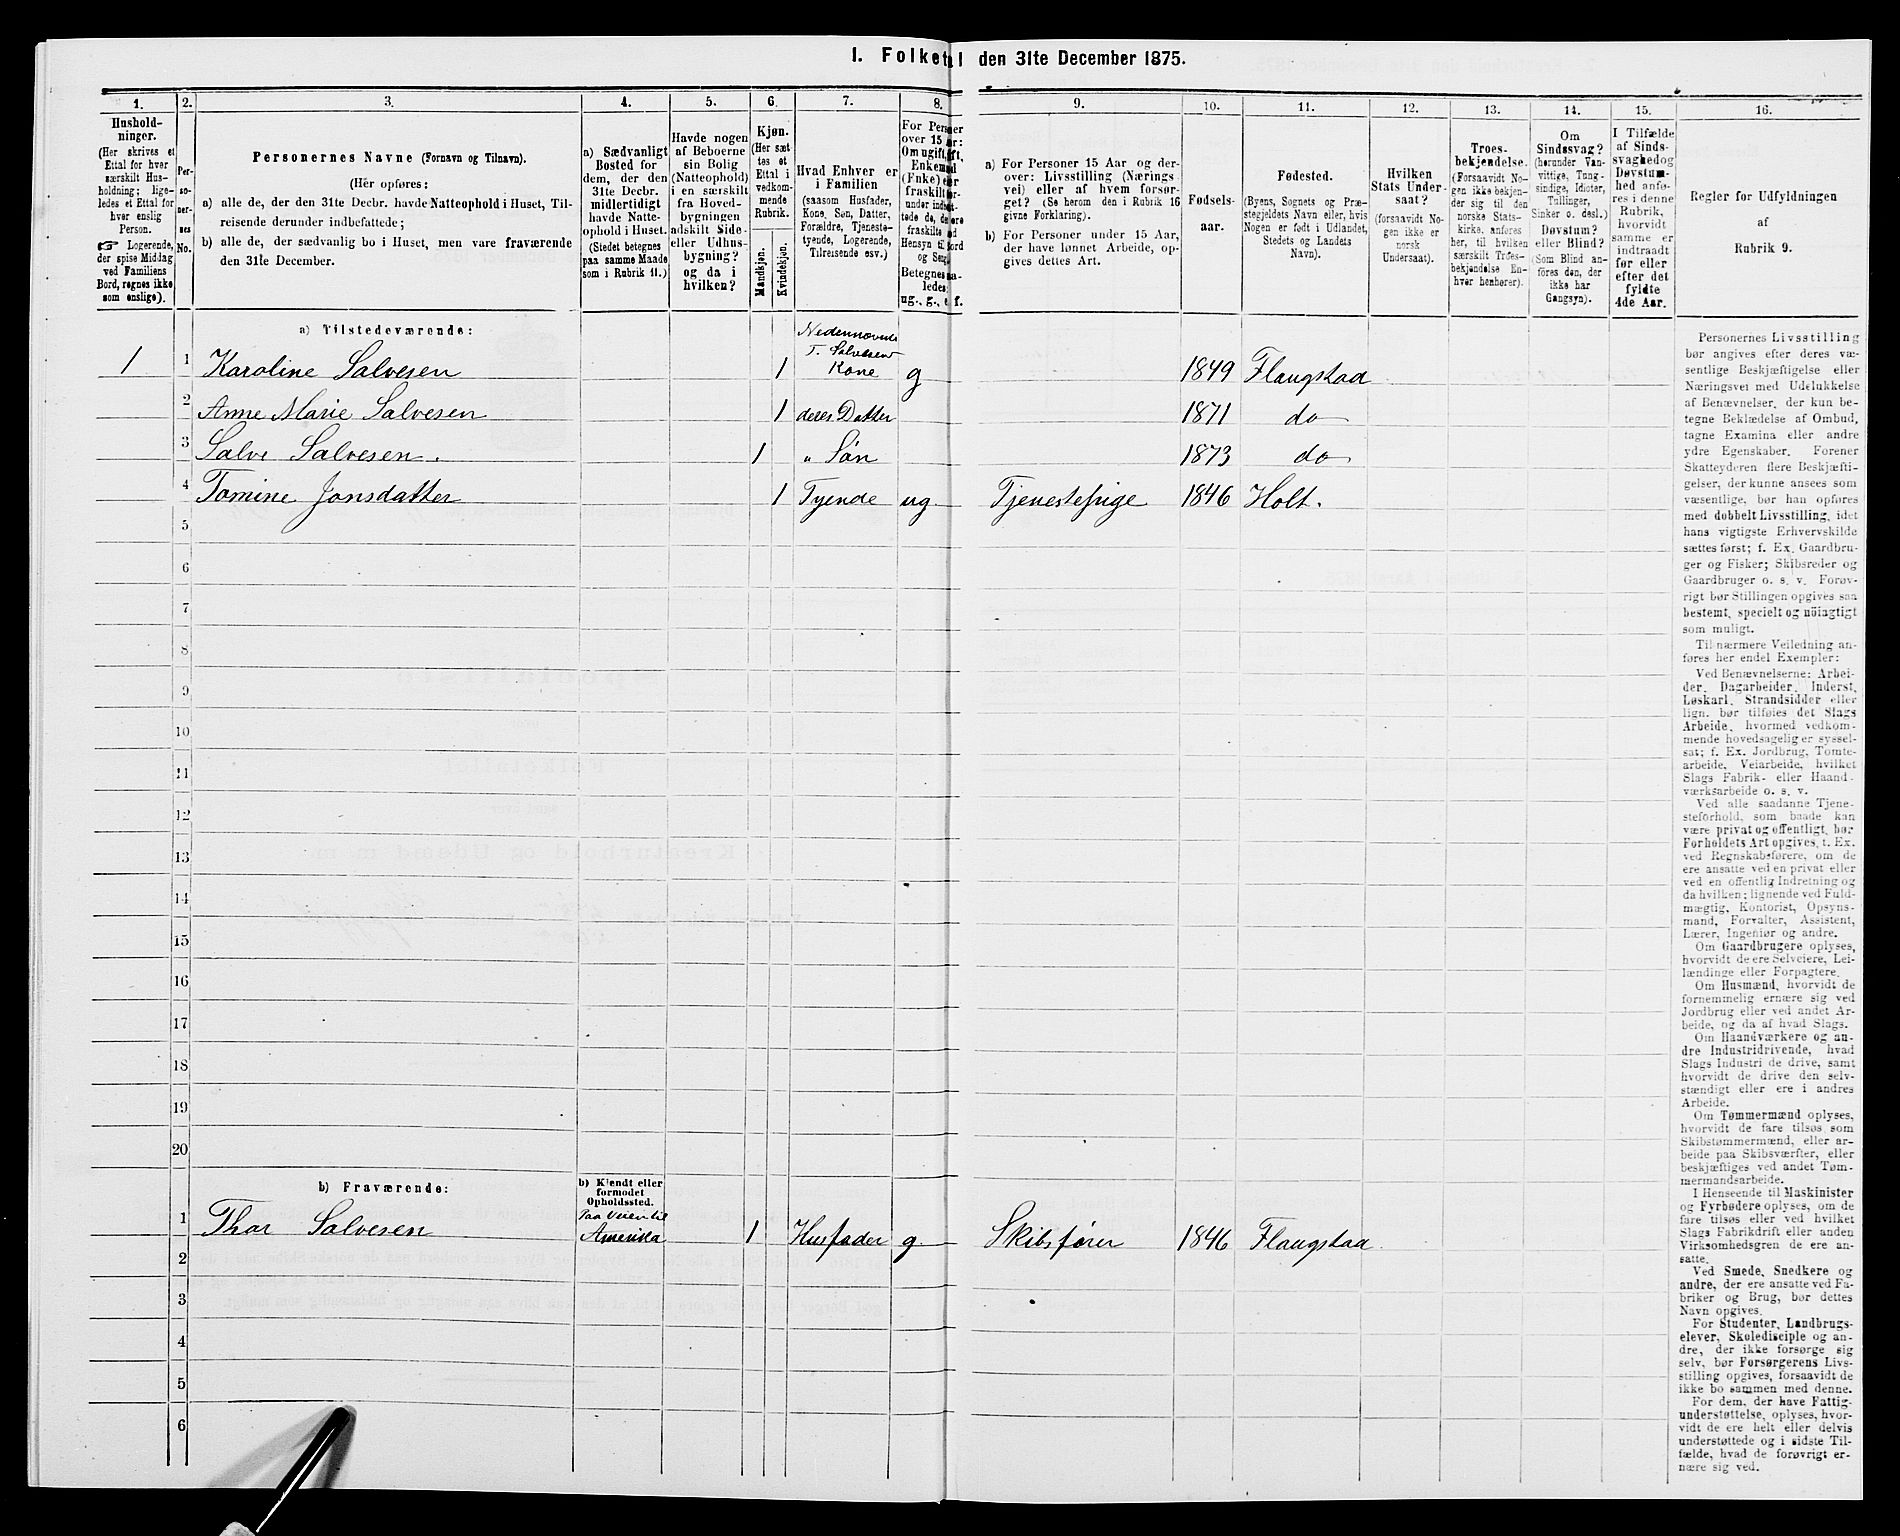 I. Folketal den 31te December 1875.
1.
2.
3.
4.
5.
6.
7.
8.
9.
10.
11.
12.
13.
14.
15.
16.
Hushold-
ninger.
(Her skrives et
Ettal for hver
særskilt Hus-
holdning; lige-
ledes et Ettal for
hver enslig
Person.
☞ Logerende,
der spise Middag
ved Familiens
Bord, regnes ikke
som enslige).
Per-
so-
ner-
nes
No.
Personernes Navne (Fornavn og Tilnavn).
(Her opføres:
a) alle de, der den 31te Decbr. havde Natteophold i Huset, Til-
reisende derunder indbefattede;
b) alle de, der sædvanlig bo i Huset, men vare fraværende
den 31te December.
a) Sædvanligt
Bosted for
dem, der den
31te Decbr.
midlertidigt
havde Natte-
ophold i Huset.
(Stedet betegnes
paa samme Maade
som i Rubrik 11.)
Havde nogen
af Beboerne
sin Bolig
(Natteophold)
i en særskilt
fra Hoved-
bygningen
adskilt Side-
eller Udhus-
bygning?
og da i
hvilken?
Kjøn.
(Her sæt-
tes et
Ettal i
vedkom-
mende
Rubrik.
Mandkjøn.
Kvindekjøn.
Hvad Enhver er
i Familien
(saasom Husfader,
Kone, Søn, Datter,
Forældre, Tjeneste-
tyende, Logerende,
Tilreisende osv.)
For Personer
over 15 Aar:
Om ugift, gift,
Enkemand
(Enke) eller
fraskilt
Betegnes saa-
ledes:
ug., g., e. f.
a) For Personer 15 Aar og der-
over: Livsstilling (Nærings-
vei) eller af hvem forsør-
get? (Se herom den i Rubrik 16
givne Forklaring).
b) For Personer under 15 Aar,
der have lønnet Arbeide, op-
gives dettes Art.
Fødsels-
aar.
Fødested.
(Byens, Sognets og Præ-
stegjeldets Navn eller, hvis
Nogen er født i Udlandet,
Stedets og Landets
Navn).
Hvilken
Stats Under-
saat?
(forsaavidt No-
gen ikke er
norsk
Undersaat).
Troes-
bekjendelse.
(Forsaavidt No-
gen ikke bekjen-
der sig til den
norske Stats-
kirke, anføres
her, til hvilken
særskilt Troes-
bekjendelse En-
hver henhører).
Om
Sindssvag?
(herunder Van-
vittige, Tung-
sindige, Idioter,
Tullinger,
Sinker o. desl.)
Døvstum?
eller Blind?
(Som Blind an-
føres den, der
ikke har
Gangsyn).
I Tilfælde
af Sinds-
svaghed og
Døvstum-
hed anfø-
res i denne
Rubrik,
hvorvidt
samme er
indtraadt
før eller
efter det
fyldte
4de Aar.
Regler for Udfyldningen
af
Rubrik 9.
a) Tilstedeværende:
1 1 Karoline Salvesen 1 Nedennævnte T. Salvesens Kone g 1849 Flaugstad
2 Anne Marie Salvesen 1 deres Datter 1871 do
3 Salve Salvesen. 1 „ Søn 1873 do
4 Tomine Jonsdatter 1 Tyende ug. Tjenestepige 1846 Holt.
5
6
7
8
9
10
11
12
13
14
15
16
17
18
19
20
b) Fraværende:
b) Kjendt eller
formodet
Opholdssted.
1 Thor Salvesen Paa Veien til Amerika 1 Husfader g. Skibsfører 1846 Flaugstad.
2
3
4
5
6
Personernes Livsstilling
bør angives efter deres væ-
sentlige Beskjæftigelse eller
Næringsvei med Udelukkelse
af Benævnelser, der kun be-
tegne Beklædelse af Ombud,
tagne Examina eller andre
ydre Egenskaber. Forener
Skatteyderen flere Beskjæfti-
gelser, der kunne ansees som
væsentlige, bør han opføres
med dobbelt Livsstilling, idet
hans vigtigste Erhvervskilde
sættes først; f. Ex. Gaardbru-
ger og Fisker; Skibsreder og
Gaardbruger o. s. v. Forøv-
rigt bør Stillingen opgives saa
bestemt, specielt og nöiagtigt
som muligt.
Til nærmere Veiledning an-
føres her endel Exempler:
Ved Benævnelserne: Arbei-
der, Dagarbeider, Inderst,
Løskarl, Strandsidder eller
lign. bør tilføies det Slags
Arbeide, hvormed vedkom-
mende hovedsagelig er syssel-
sat; f. Ex. Jordbrug, Tomte-
arbeide, Veiarbeide, hvilket
Slags Fabrik- eller Haand-
værksarbeide o. s. v.
Ved alle saadanne Tjene-
steforhold, som baade kan
være privat og offentligt, bør
Forholdets Art opgives, t. Ex.
ved Regnskabsførere, om de
ere ansatte ved en privat eller
ved en offentlig Indretning og
da hvilken; lignende ved Fuld-
mægtig, Kontorist, Opsyns-
mand, Forvalter, Assistent,
Lærer, Ingeniør og andre.
Om Gaardbrugere oplyses,
hvorvidt de ere Selveiere, Lei-
lændinge eller Forpagtere.
Om Husmænd, hvorvidt de
fornemmelig ernære sig ved
Jordbrug eller ved andet Ar-
beide, og da af hvad Slags.
Om Haandværkere og an-
dre Industridrivende, hvad
Slags Industri de drive, samt
hvorvidt de drive den selv-
stændigt eller ere i andres
Arbeide.
Om Tømmermænd oplyses,
hvorvidt de fare tilsøs som
Skibstømmermænd, eller ar-
beide paa Skibsværfter, eller
beskjæftiges ved andet Tøm-
mermandsarbeide.
I Henseende til Maskinister
og Fyrbødere oplyses, om de
fare tilsøs eller ved hvilket
Slags Fabrikdrift eller anden
Virksomhedsgren de ere an-
satte.
Ved Smede, Snedkere og
andre, der ere ansatte ved Fa-
briker og Brug, bør dettes
Navn opgives.
For Studenter, Landbrugs-
elever, Skoledisciple og an-
dre, der ikke forsørge sig
selv, bør Forsørgerens Livs-
stilling opgives, forsaavidt de
ikke bo sammen med denne.
For dem, der have Fattig-
understøttelse, oplyses, hvor-
vidt de ere helt eller delvis
understøttede og i sidste Til-
fælde, hvad de forøvrigt er-
nære sig ved.